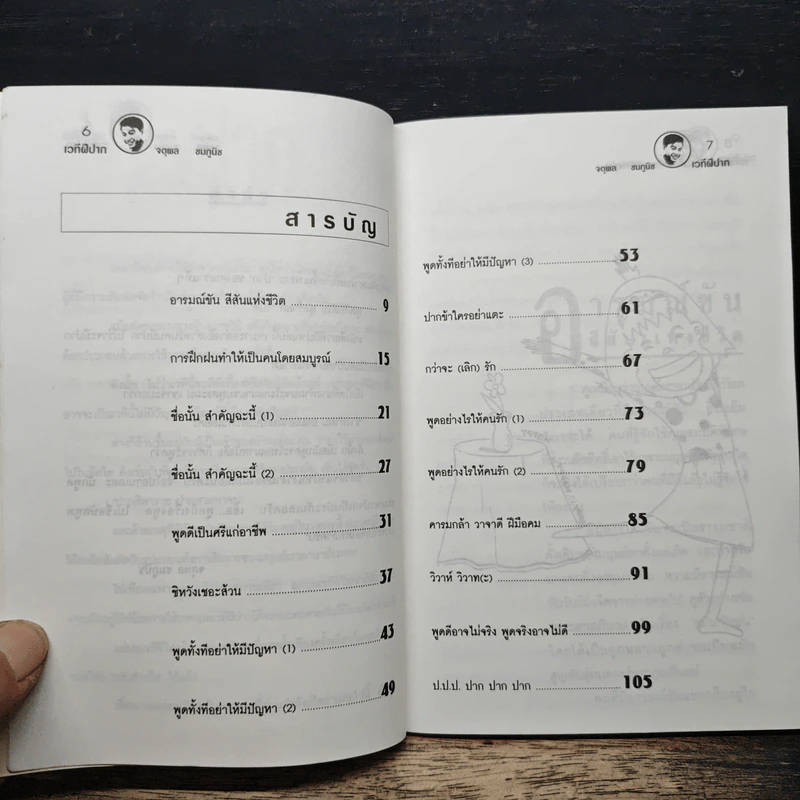 6
เวทีฝีปาก
จตุพล ชมภูนิช
สารบัญ
อารมณ์ขัน สีสันแห่งชีวิต ........................ 9
การฝึกฝนทำให้เป็นคนโดยสมบูรณ์ .............. 15
ชื่อนั้น สำคัญฉะนี้ (1) ........................... 21
ชื่อนั้น สำคัญฉะนี้ (2) ........................... 27
พูดดีเป็นศรีแก่อาชีพ .............................. 31
ชิหวังเชอะส้วน ................................... 37
พูดทั้งทีอย่าให้มีปัญหา (1) ....................... 43
พูดทั้งทีอย่าให้มีปัญหา (2) ....................... 49
7
จตุพล ชมภูนิช
เวทีฝีปาก
พูดทั้งทีอย่าให้มีปัญหา (3) ....................... 53
ปากข้าใครอย่าแตะ ................................ 61
กว่าจะ (เลิก) รัก ................................. 67
พูดอย่างไรให้คนรัก (1) ........................... 73
พูดอย่างไรให้คนรัก (2) ........................... 79
คารมกล้า วาจาดี ฝีมือคม ........................ 85
วิวาห์ วิวาท(ะ) ................................... 91
พูดดีอาจไม่จริง พูดจริงอาจไม่ดี ................. 99
ป.ป.ป. ปาก ปาก ปาก ........................... 105